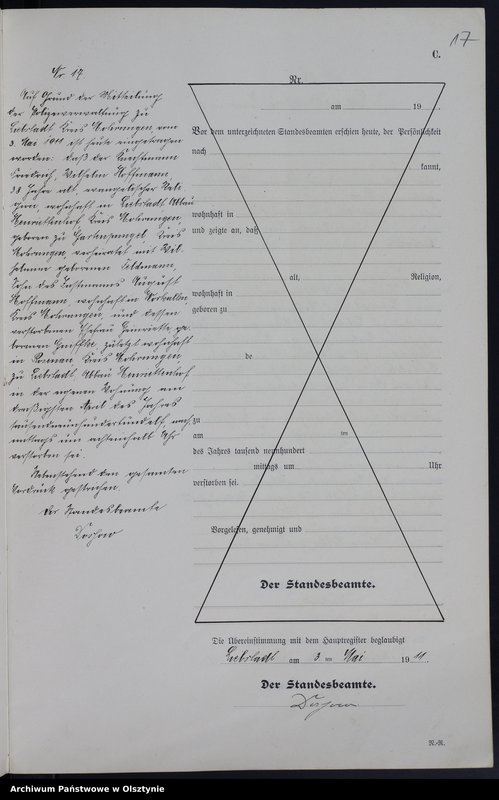 17
C.
Nr. 17.
Auf Grund der Mitteilung
der Polizeiverwaltung zu
Liebstadt Kreis Mohrungen vom
3. Mai 1911 ist heute eingetragen
worden: daß der
Friedrich, Wilhelm Hoffmann,
38 Jahre alt, evangelischer Reli-
gion, wohnhaft in Liebstadt Abbau
Kreis Mohrungen,
geboren zu Kreis
Mohrungen, verheiratet mit Wil-
helmine geborenen
Sohn des August
Hoffmann, wohnhaft in
Kreis Mohrungen, und dessen
verstorbenen Ehefrau Henriette, ge-
borenen zuletzt wohnhaft
in Kreis Mohrungen,
zu Liebstadt, Abbau
in der eigenen Wohnung am
dreißigsten April des Jahres
tausendneunhundertundelf, nach-
mittags um achteinhalb Uhr
verstorben sei.
Nebenstehend den gesamten
Vordruck gestrichen.
Der Standesbeamte
Nr.
am 19
Vor dem unterzeichneten Standesbeamten erschien heute, der Persönlichkeit
nach
kannt,
wohnhaft in
und zeigte an, daß
alt, Religion,
wohnhaft in
geboren zu
de
zu
am ten
des Jahres tausend neunhundert
mittags um Uhr
verstorben sei.
Vorgelesen, genehmigt und
Der Standesbeamte.
Die Übereinstimmung mit dem Hauptregister beglaubigt
Liebstadt am 3. ten Mai 1911.
Der Standesbeamte.
N.-R.
Archiwum Państwowe w Olsztynie